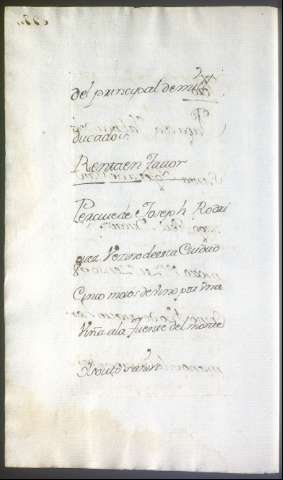 del principal de mill
ducados
Renta en Favor
Percive de Joseph Rodri
guez Vezino de esta Ciudad
Cinco moios de vino por una
Viña a la fuente del monte